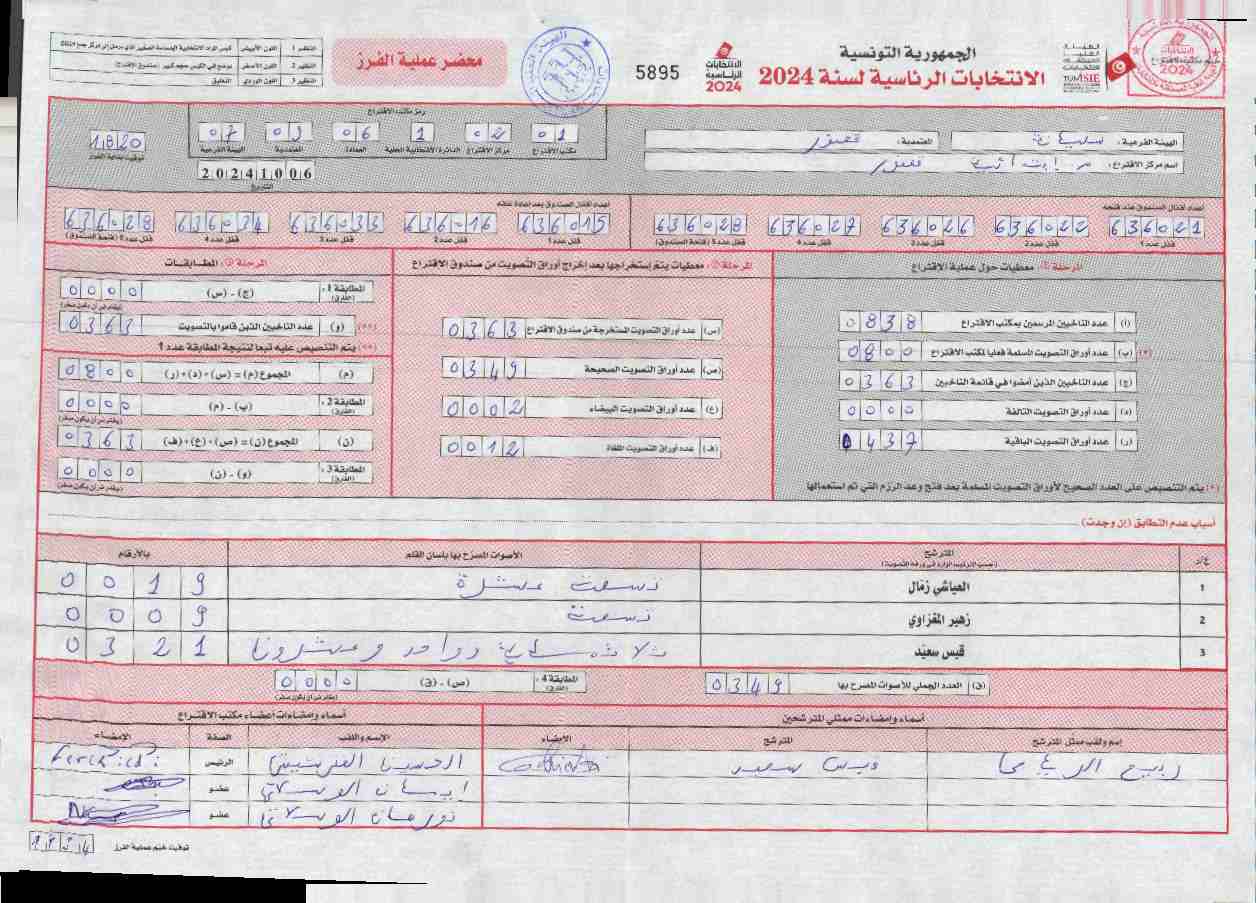 الجمهورية التونسية
الانتخابات الرئاسية لسنة 2024
الانتخابات الرئاسية 2024
5895
محضر عملية الفرز
النظير 1 اللون الأبيض
النظير 2 اللون الأصفر يوضع في الكيس الكبير (صندوق الاقتراع)
النظير 3 اللون الوردي التعليق
الهيئة الفرعية : سليانة المعتمدية :
اسم مركز الاقتراع :
رمز مكتب الاقتراع
01 02 1 06 03 07
مكتب الاقتراع مركز الاقتراع الدائرة الانتخابية المحلية العمادة المعتمدية الهيئة الفرعية
1820
توقيت بداية الفرز
20241006
التاريخ
أعداد أقفال الصندوق عند فتحه
636021 636022 636026 636027 636028
قفل عدد 1 قفل عدد 2 قفل عدد 3 قفل عدد 4 قفل عدد 5 (فتحة الصندوق)
أعداد أقفال الصندوق بعد إعادة غلقه
636015 636016 636033 636034 636028
قفل عدد 1 قفل عدد 2 قفل عدد 3 قفل عدد 4 قفل عدد 5 (فتحة الصندوق)
المرحلة 1: معطيات حول عملية الاقتراع
(أ) عدد الناخبين المرسمين بمكتب الاقتراع 0838
(*) (ب) عدد أوراق التصويت المسلمة فعليا لمكتب الاقتراع 0800
(ج) عدد الناخبين الذين أمضوا في قائمة الناخبين 0363
(د) عدد أوراق التصويت التالفة 0000
(ر) عدد أوراق التصويت الباقية 0437
(*) يتم التنصيص على العدد الصحيح لأوراق التصويت المسلمة بعد فتح وعد الرزم التي تم استعمالها
المرحلة 2: معطيات يتم إستخراجها بعد إخراج أوراق التصويت من صندوق الاقتراع
(س) عدد أوراق التصويت المستخرجة من صندوق الاقتراع 0363
(ص) عدد أوراق التصويت الصحيحة 0349
(ع) عدد أوراق التصويت البيضاء 0002
(ف) عدد أوراق التصويت الملغاة 0012
المرحلة 3: المطابقات
المطابقة 1: (الفارق) (ج) - (س) 0000
(يتعين أن يكون صفر)
(**) (و) عدد الناخبين الذين قاموا بالتصويت 0363
(**) يتم التنصيص عليه تبعا لنتيجة المطابقة عدد 1
(م) المجموع (م) = (س) + (د) + (ر) 0800
المطابقة 2: (الفارق) (ب) - (م) 0000
(يتعين أن يكون صفر)
(ن) المجموع (ن) = (ص) + (ع) + (ف) 0363
المطابقة 3: (الفارق) (و) - (ن) 0000
(يتعين أن يكون صفر)
أسباب عدم التطابق (إن وجدت)
ع/د المترشح الأصوات المصرح بها بلسان القلم بالأرقام
(حسب الترتيب الوارد في ورقة التصويت)
1 العياشي زمال تسعة عشرة 0019
2 زهير المغزاوي تسعة 0009
3 قيس سعيد ثلاث مائة وواحد وعشرون 0321
(ق) العدد الجملي للأصوات المصرح بها 0349
المطابقة 4: (الفارق) (ص) - (ق) 0000
(يتعين أن يكون صفر)
أسماء وإمضاءات ممثلي المترشحين
إسم ولقب ممثل المترشح المترشح الإمضاء
قيس سعيد
أسماء وإمضاءات أعضاء مكتب الاقتراع
الإسم واللقب الصفة الإمضاء
الرئيس
عضو
عضو
توقيت ختم عملية الفرز